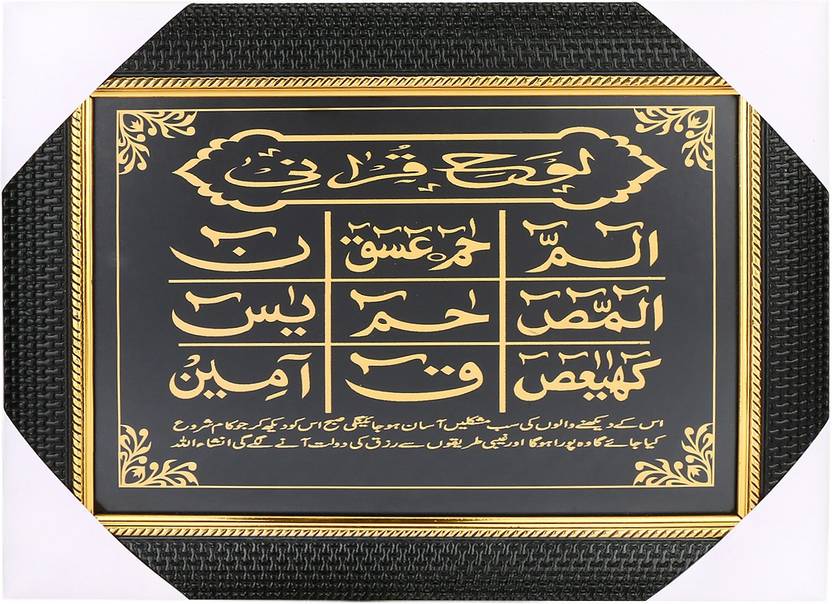 لوح قرآنی
الٓمّٓ حٰمٓ عٓسٓقٓ نٓ
الٓمّٓصٓ حٰمٓ یٰسٓ
کٓھٰیٰعٓصٓ قٓ آمِیْن
اس کے دیکھنے والوں کی سب مشکلیں آسان ہو جائینگی صبح اس کو دیکھ کر جو کام شروع
کیا جائے گا وہ پورا ہوگا اور غیبی طریقوں سے رزق کی دولت آنے لگے گی انشاء اللہ